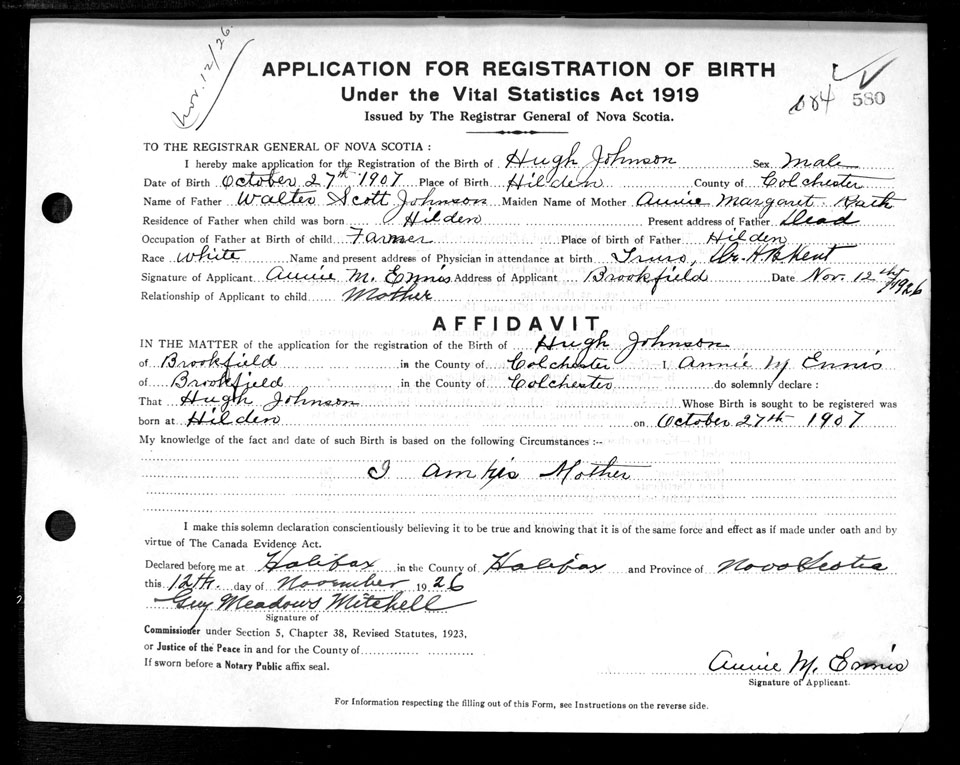 Nov. 12/26
APPLICATION FOR REGISTRATION OF BIRTH
Under the Vital Statistics Act 1919
Issued by The Registrar General of Nova Scotia.
580
TO THE REGISTRAR GENERAL OF NOVA SCOTIA :
I hereby make application for the Registration of the Birth of Hugh Johnson Sex Male
Date of Birth October 27th 1907 Place of Birth Hilden County of Colchester
Name of Father Walter Scott Johnson Maiden Name of Mother Annie Margaret
Residence of Father when child was born Hilden Present address of Father Dead
Occupation of Father at Birth of child Farmer Place of birth of Father Hilden
Race White Name and present address of Physician in attendance at birth Truro, Dr. H B Kent
Signature of Applicant Annie M. Ennis Address of Applicant Brookfield Date Nov. 12th 1926
Relationship of Applicant to child Mother
AFFIDAVIT
IN THE MATTER of the application for the registration of the Birth of Hugh Johnson
of Brookfield in the County of Colchester I Annie M Ennis
of Brookfield in the County of Colchester do solemnly declare :
That Hugh Johnson Whose Birth is sought to be registered was
born at Hilden on October 27th 1907
My knowledge of the fact and date of such Birth is based on the following Circumstances :-
I am his Mother
I make this solemn declaration conscientiously believing it to be true and knowing that it is of the same force and effect as if made under oath and by
virtue of The Canada Evidence Act.
Declared before me at Halifax in the County of Halifax and Province of Nova Scotia
this 12th. day of November 1926
Guy Meadows Mitchell
Signature of
Commissioner under Section 5, Chapter 38, Revised Statutes, 1923,
or Justice of the Peace in and for the County of
If sworn before a Notary Public affix seal.
Annie M. Ennis
Signature of Applicant.
For Information respecting the filling out of this Form, see Instructions on the reverse side.